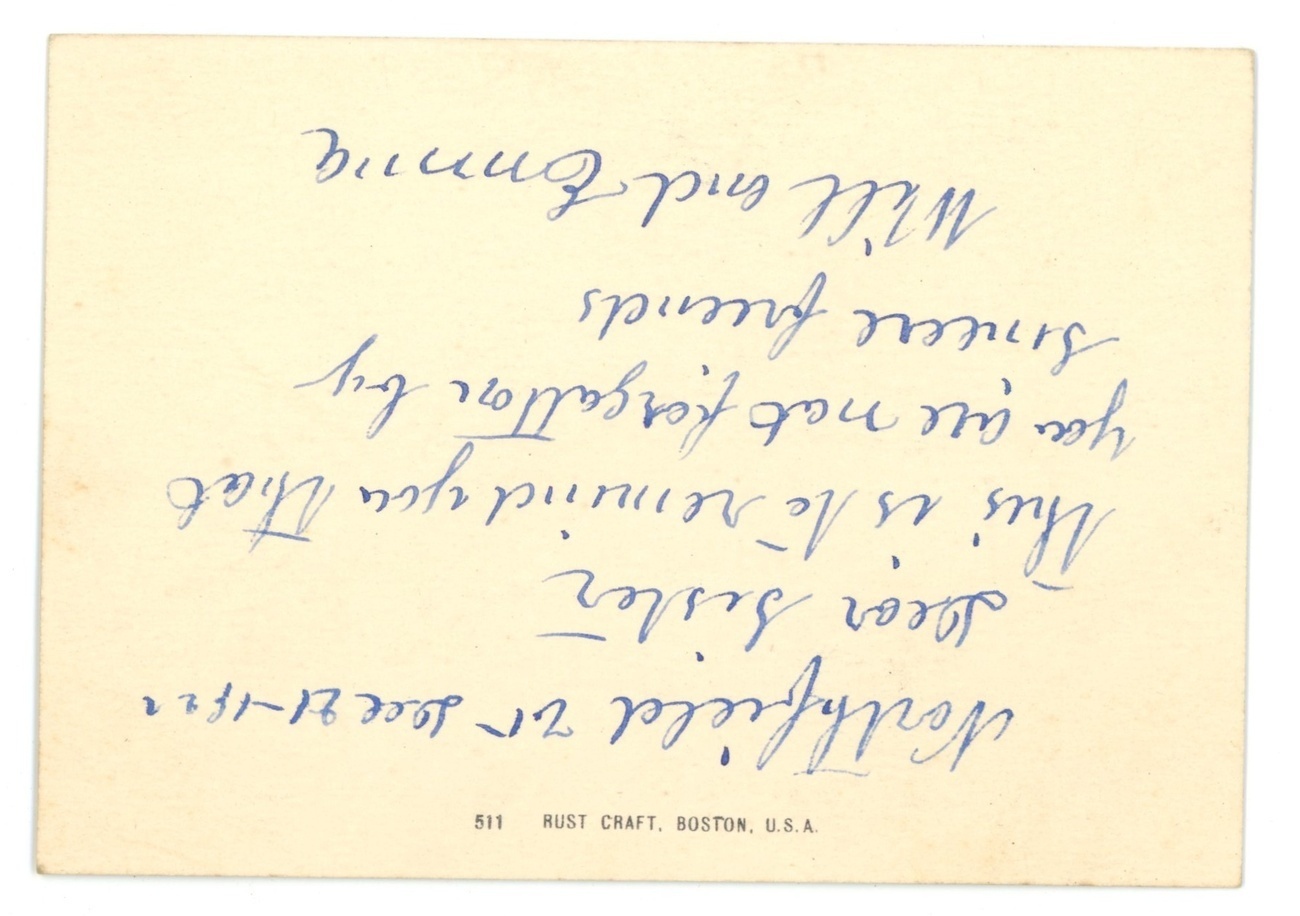 Northfield Vt Dec 21-1922
Dear Sister
this is to remind you that
you are not forgotton by
Sincere friends
Will and Emma
511 RUST CRAFT, BOSTON, U.S.A.